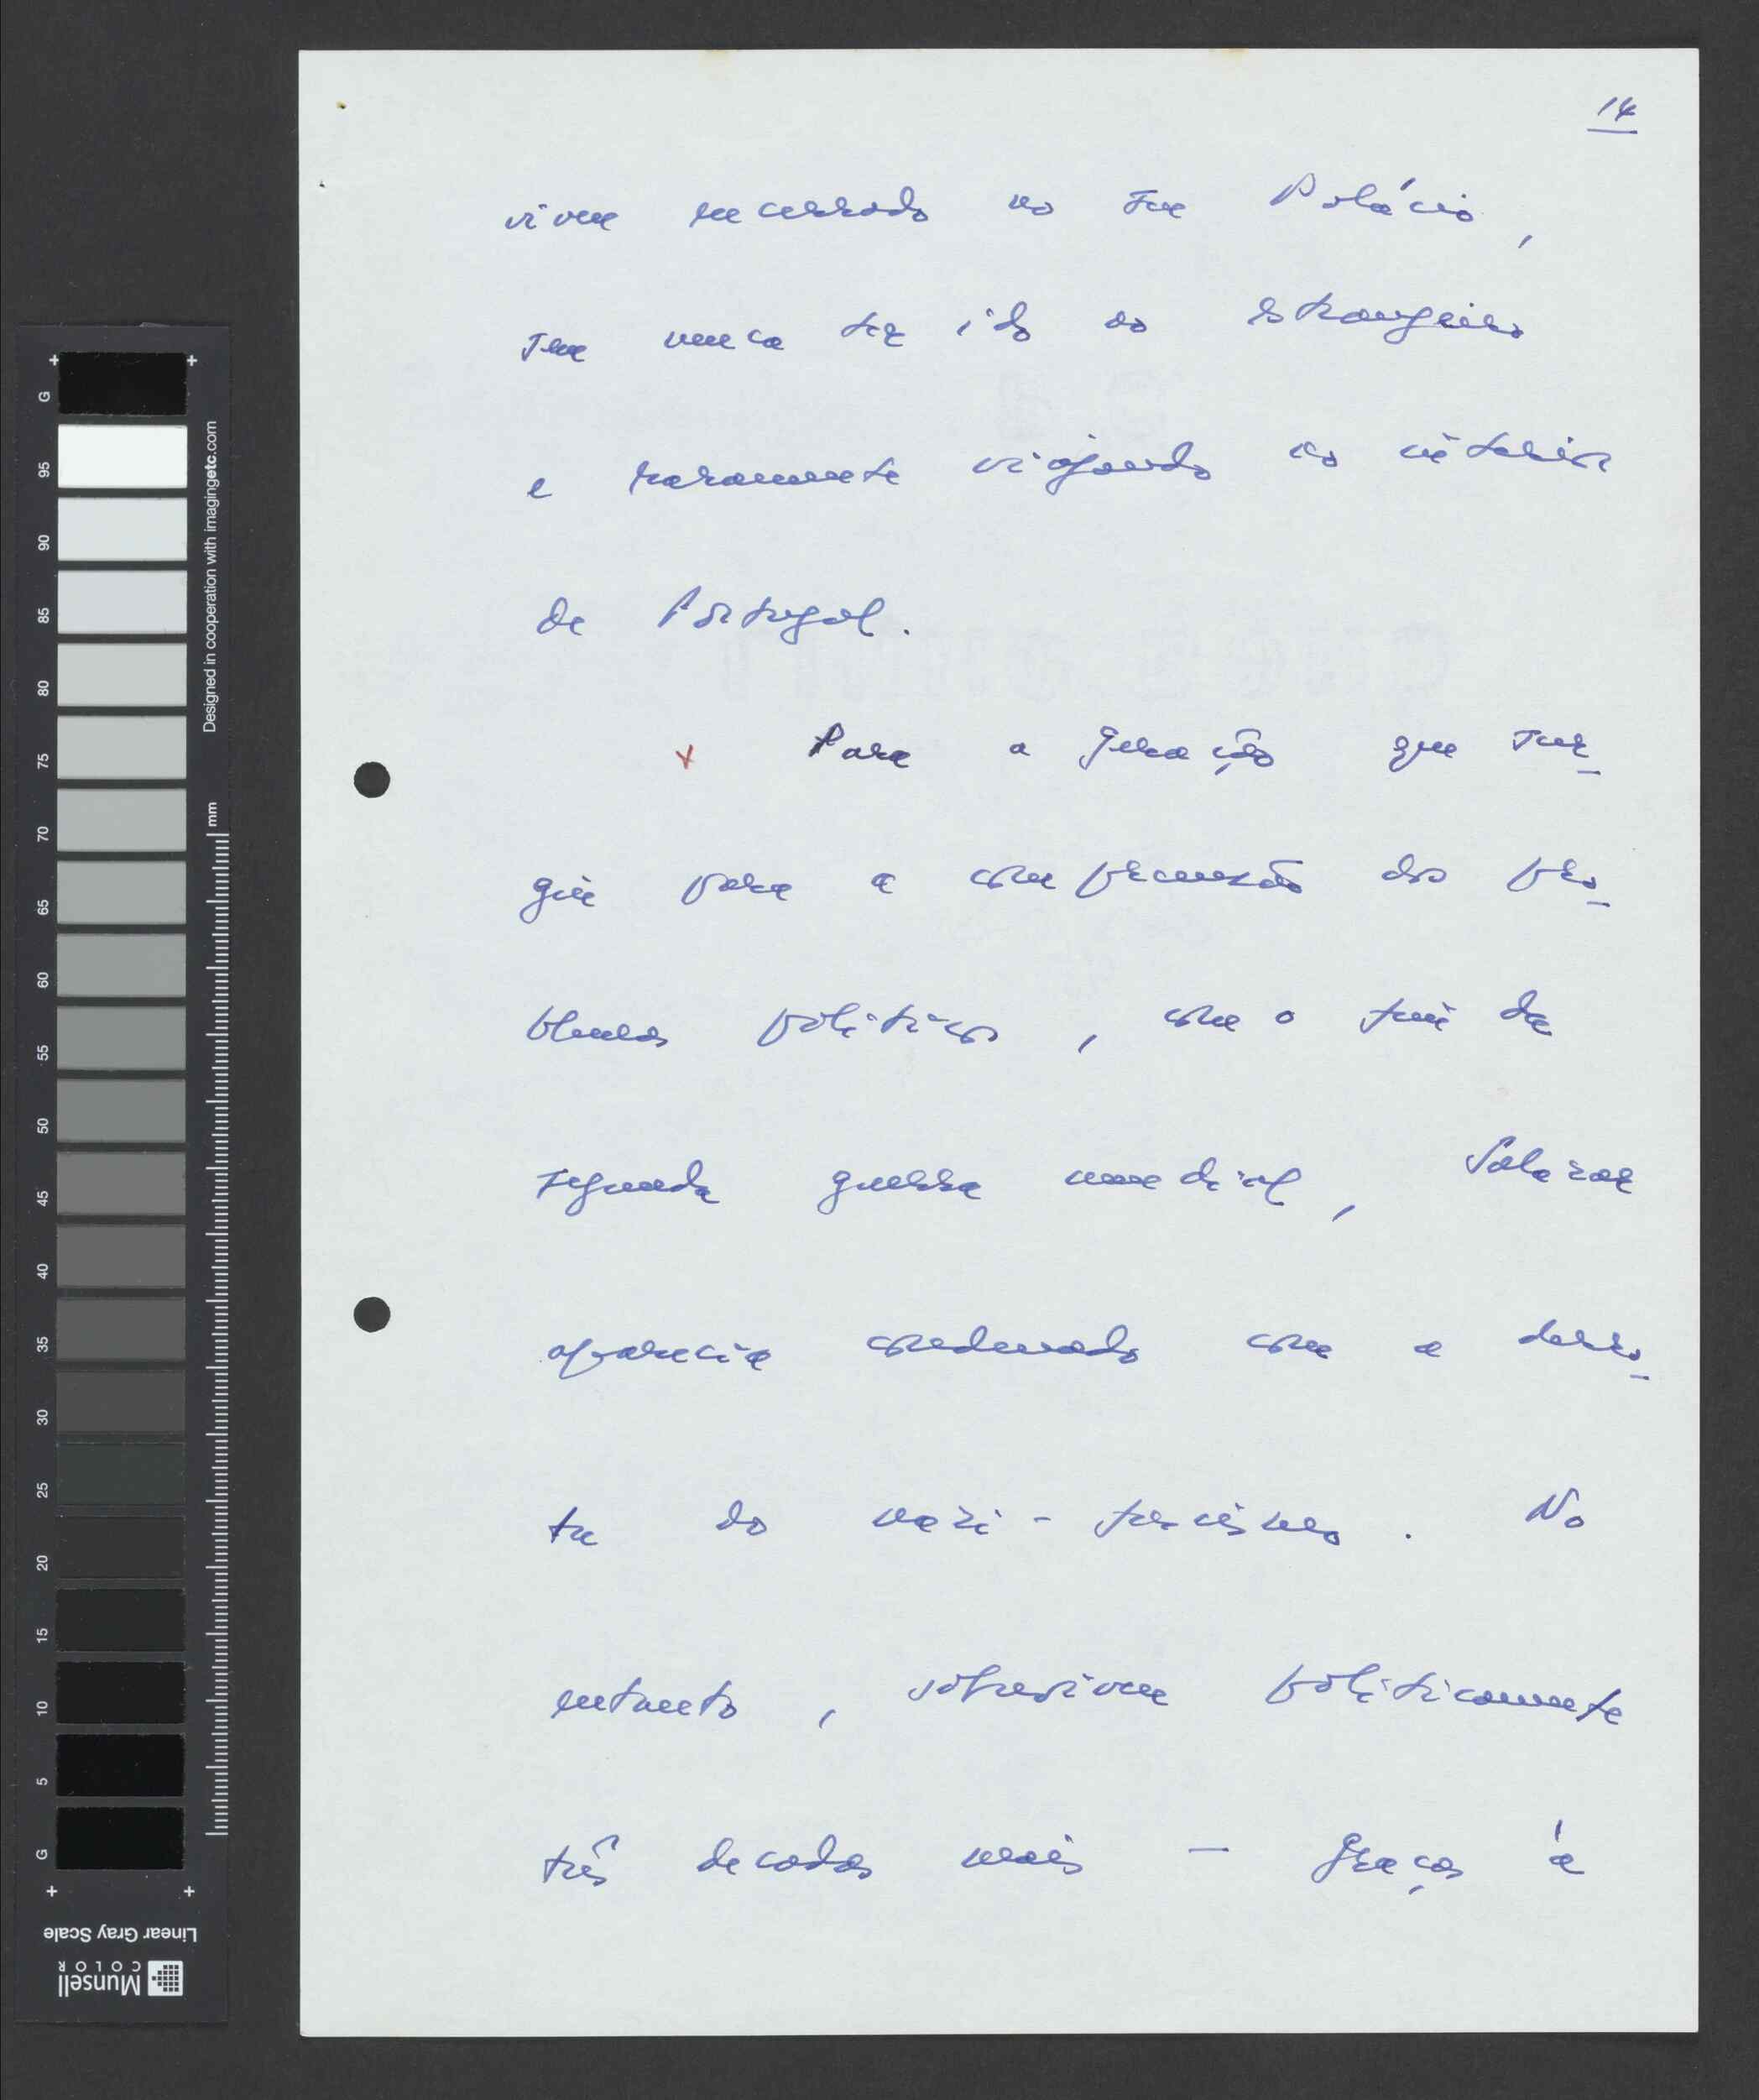 14
viveu encerrado no seu Palácio,
sem nunca ter ido ao estrangeiro
e raramente viajando no interior
de Portugal.
x Para a geração que sur-
giu para a compreensão dos pro-
blemas políticos, com o fim da
segunda guerra mundial, Salazar
aparecia condenado com a derro-
ta do nazi-fascismo. No
entanto, sobreviveu politicamente
três decadas mais — graças à
G
95
90
85
80
75
70
65
60
55
50
45
40
35
30
25
20
15
10
5
G
Designed in cooperation with imagingetc.com
mm
Linear Gray Scale
Munsell
COLOR